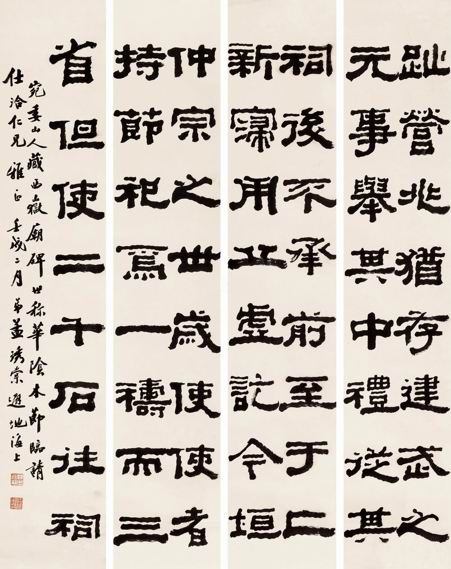 趾營兆猶存建武之
元事舉其中禮從其
祠後不承前至于亡
新寖用丘虛訖今垣
仲宗之世歲使使者
持節祀焉一禱而三
省但使二千石往祠
宛委山人藏西嶽廟碑世稱華陰本節臨請
仕洽仁兄雅正壬戌二月弟避地海上